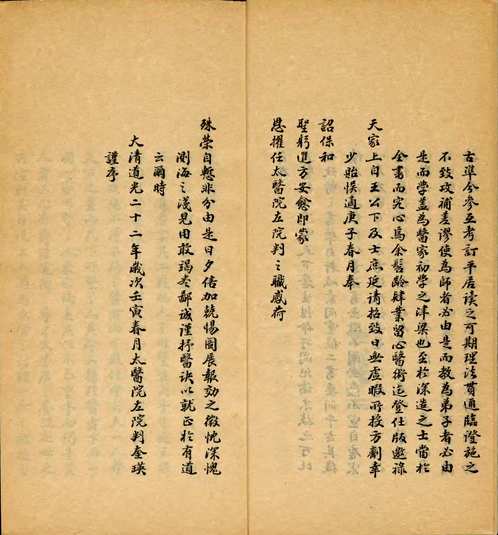 古準今參互考訂平居讀之可期理法貫通臨證施之
不致攻補差謬使為師者必由是而教為弟子者必由
是而學蓋為醫家初學之津梁也至於深造之士當於
全書而究心焉余髫齡肄業留心醫術迨登仕版邀祿
天家上自王公下及士庶延請招致日無虛暇所投方劑幸
少貽悞適庚子春月奉
詔保和
聖躬進方安愈即蒙
恩擢任太醫院左院判之職感荷
殊榮自慙非分由是日夕倍加兢惕圖展報効之微忱深愧
測海之淺見用敢竭其鄙誠謹抒醫訣以就正於有道
云爾時
大清道光二十二年歲次壬寅春月太醫院左院判奎瑛
謹序